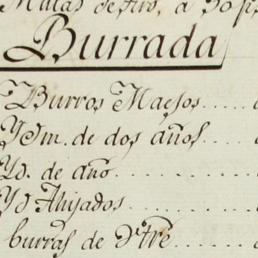 Mulas de tiro, a 50 p
Burrada
Burros Maesos....
Ydm. de dos años....
Yd. de año........
Yd Ahijados........
burras de Vtre.......